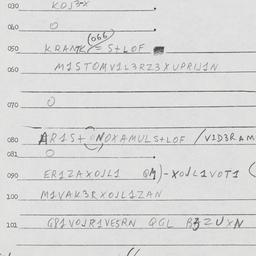 030 KOJ3-X
040 O
050 KRANK = S+LOF
(066)
060 M1STOMV1L3RZ3XUPRIJ1N
070 O
080 AR1S+ONOXAMULS+LOF /V1D3RAM
081 O
090 ER1ZAXOJL1 QA)-XOJL1VOT1 (
100 M1VAK3RXOJL1ZAN
101 GP1VOJR1VESRN QGL R3ZUXN